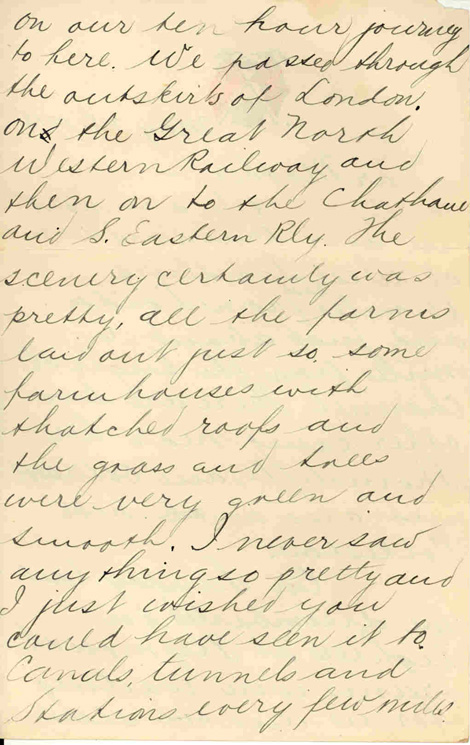 on our ten hour journey
to here. We passed through
the outskirts of London.
on the Great North
Western Railway and
then on to the Chatham
and S. Eastern Rly. The
scenery certainly was
pretty, all the farms
laid out just so. some
farmhouses with
thatched roofs and
the grass and trees
were very green and
smooth. I never saw
anything so pretty and
I just wished you
could have seen it to.
Canals, tunnels and
Stations every few miles